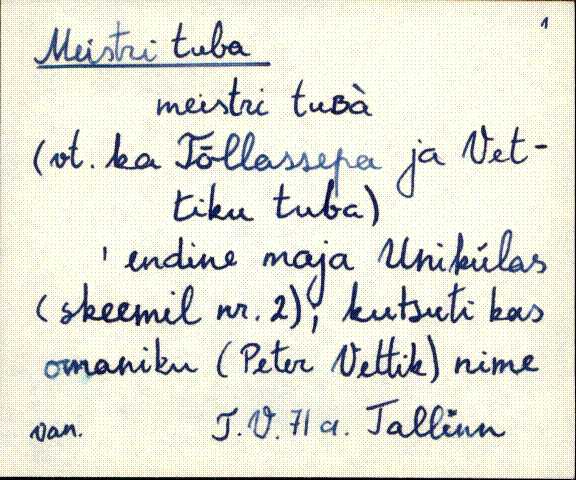 1
Meistri tuba
meistri tuʙà
(vt. ka Tõllassepa ja Vet-
tiku tuba)
' endine maja Unikülas
(skeemil nr. 2), kutsuti kas
omaniku (Peter Vettik) nime
van. T.V. 71 a. Tallinn